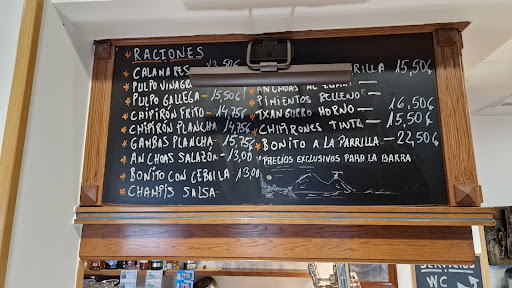 RACIONES
CALAMARES 13,50€
PULPO VINAGR
PULPO GALLEGA - 15,50€
CHIPIRÓN FRITO - 14,75€
CHIPIRÓN PLANCHA 14,75€
GAMBAS PLANCHA - 15,75€
ANCHOAS SALAZÓN - 13,00
BONITO CON CEBOLLA 13,00
CHAMPIS SALSA
RILLA 15,50€
PIMIENTOS RELLENOS —
TXANGURRO HORNO — 16,50€
CHIPIRONES TINTA — 15,50€
BONITO A LA PARRILLA — 22,50€
PRECIOS EXCLUSIVOS PARA LA BARRA
SERVICIOS
WC